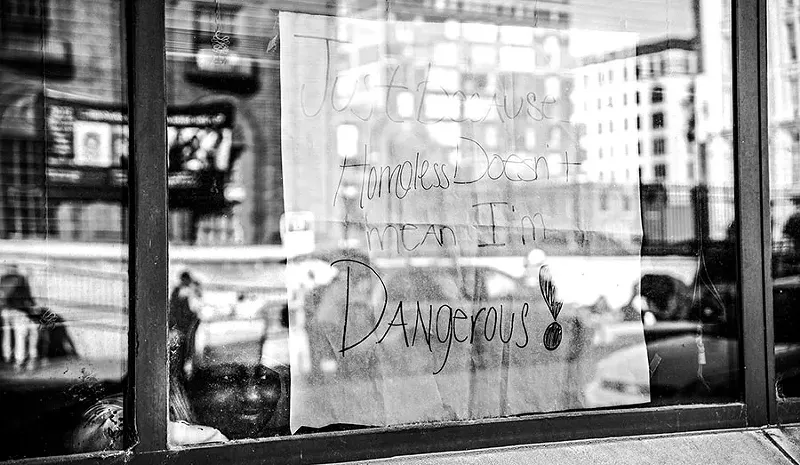 Just because
Homeless Doesn't
mean I'm
Dangerous!